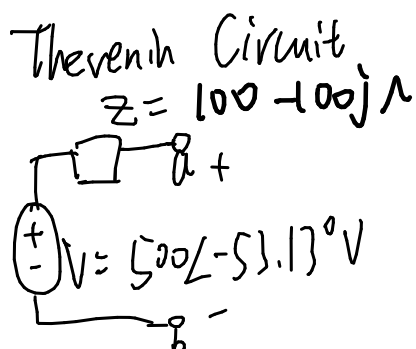 Thevenin Circuit
Z = 100 -100j Λ
a +
+
-
V = 500∠-53.13° V
-
b